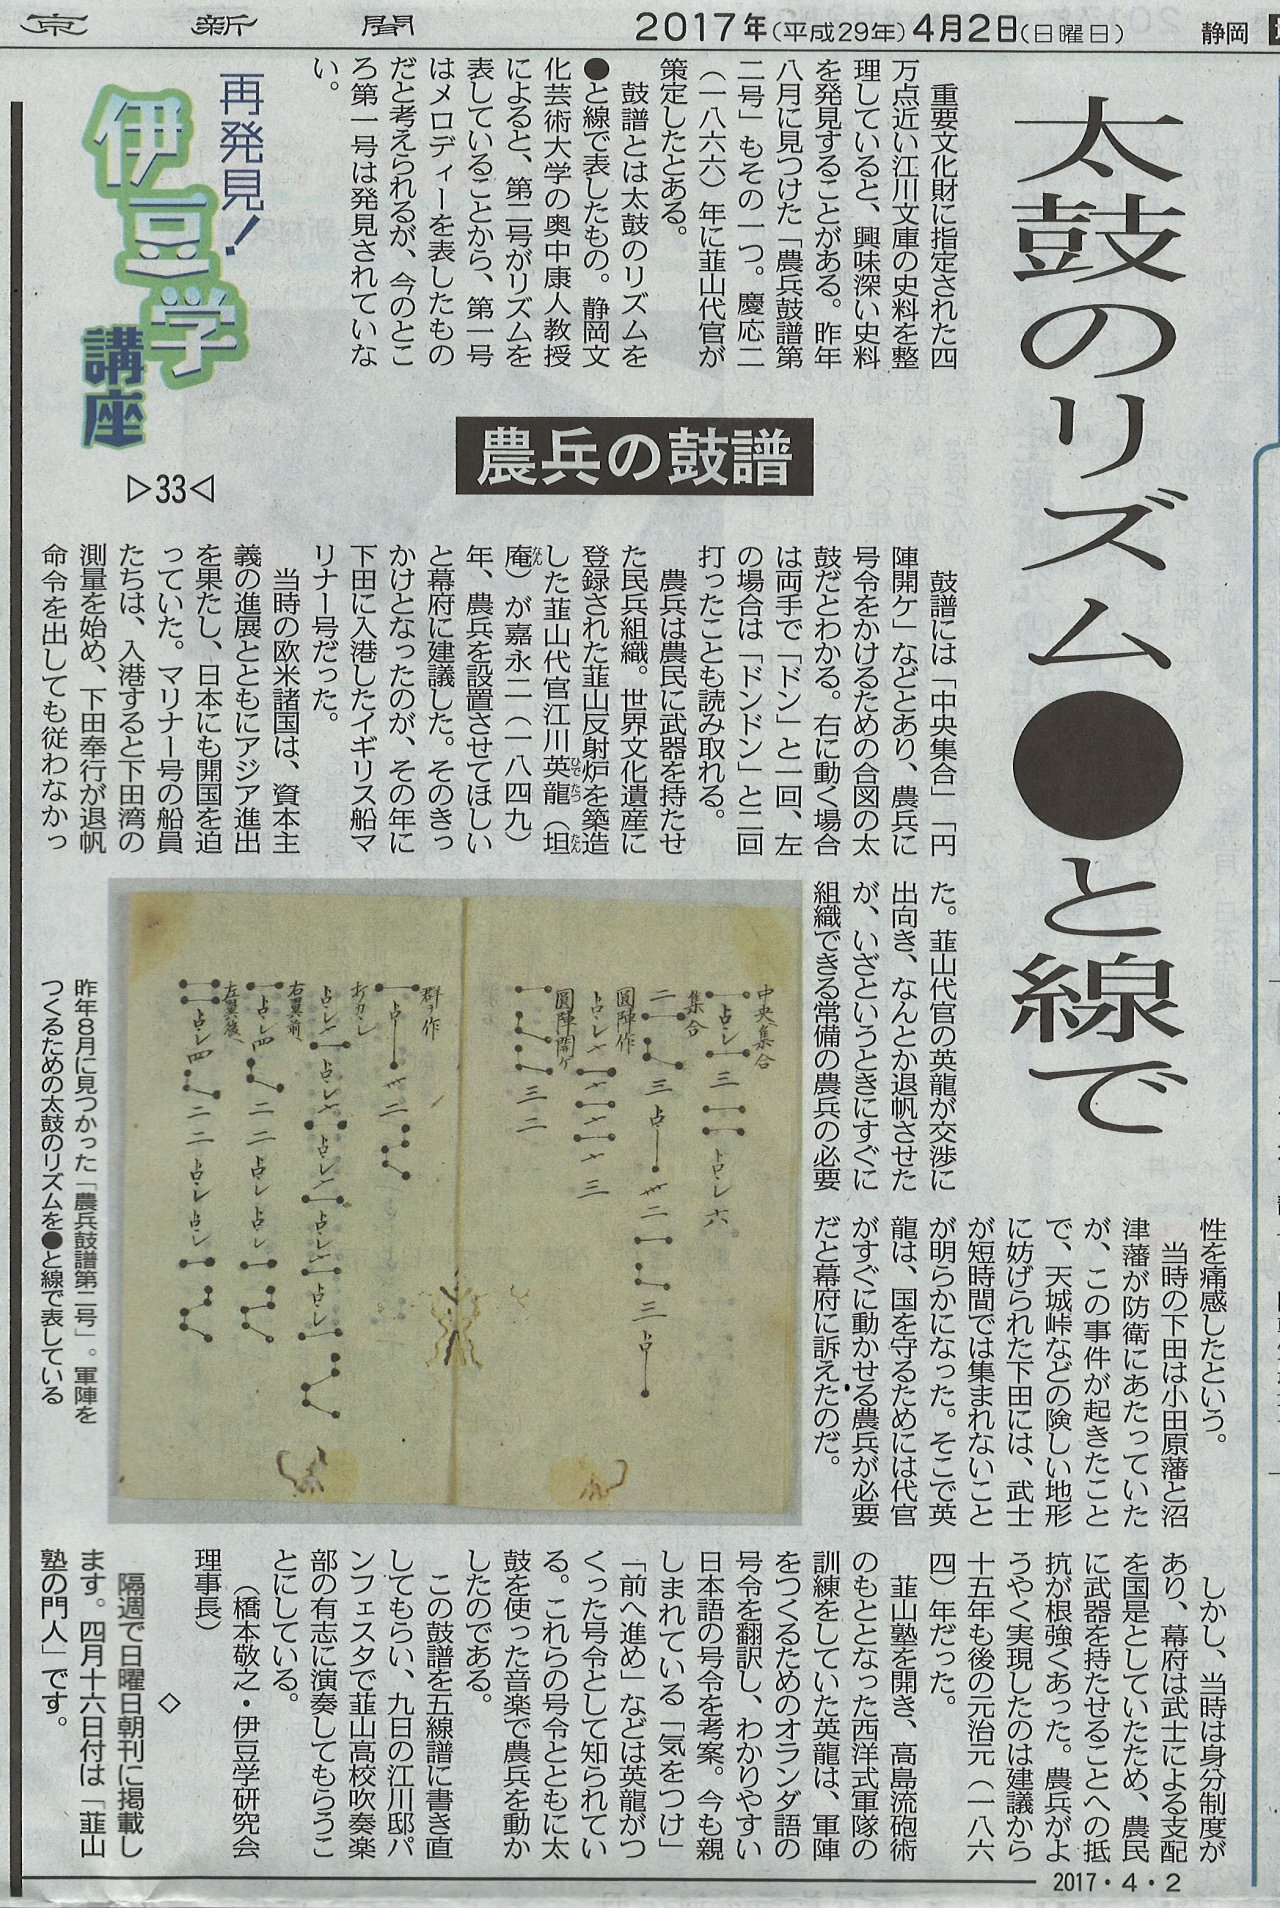 京新聞
2017年(平成29年)4月2日(日曜日)
静岡
太鼓のリズム●と線で
重要文化財に指定された四
万点近い江川文庫の史料を整
理していると、興味深い史料
を発見することがある。昨年
八月に見つけた「農兵鼓譜第
二号」もその一つ。慶応二
(一八六六)年に韮山代官が
策定したとある。
鼓譜とは太鼓のリズムを
●と線で表したもの。静岡文
化芸術大学の奥中康人教授
によると、第二号がリズムを
表していることから、第一号
はメロディーを表したもの
だと考えられるが、今のとこ
ろ第一号は発見されていな
い。
再発見!
伊豆学
講座
▷33◁
農兵の鼓譜
鼓譜には「中央集合」「円
陣開ケ」などとあり、農兵に
号令をかけるための合図の太
鼓だとわかる。右に動く場合
は両手で「ドン」と一回、左
の場合は「ドンドン」と二回
打ったことも読み取れる。
農兵は農民に武器を持たせ
た民兵組織。世界文化遺産に
登録された韮山反射炉を築造
した韮山代官江川英龍(坦
庵)が嘉永二(一八四九)
年、農兵を設置させてほしい
と幕府に建議した。そのきっ
かけとなったのが、その年に
下田に入港したイギリス船マ
リナー号だった。
当時の欧米諸国は、資本主
義の進展とともにアジア進出
を果たし、日本にも開国を迫
っていた。マリナー号の船員
たちは、入港すると下田湾の
測量を始め、下田奉行が退帆
命令を出しても従わなかっ
た。韮山代官の英龍が交渉に
出向き、なんとか退帆させた
が、いざというときにすぐに
組織できる常備の農兵の必要
性を痛感したという。
当時の下田は小田原藩と沼
津藩が防衛にあたっていた
が、この事件が起きたこと
で、天城峠などの険しい地形
に妨げられた下田には、武士
が短時間では集まれないこと
が明らかになった。そこで英
龍は、国を守るためには代官
がすぐに動かせる農兵が必要
だと幕府に訴えたのだ。
中央集合
集合
圓陣作
圓陣開ケ
群ヲ作
右翼前
左翼後
昨年8月に見つかった「農兵鼓譜第二号」。軍陣を
つくるための太鼓のリズムを●と線で表している
しかし、当時は身分制度が
あり、幕府は武士による支配
を国是としていたため、農民
に武器を持たせることへの抵
抗が根強くあった。農兵がよ
うやく実現したのは建議から
十五年も後の元治元(一八六
四)年だった。
韮山塾を開き、高島流砲術
のもととなった西洋式軍隊の
訓練をしていた英龍は、軍陣
をつくるためのオランダ語の
号令を翻訳し、わかりやすい
日本語の号令を考案。今も親
しまれている「気をつけ」
「前へ進め」などは英龍がつ
くった号令として知られてい
る。これらの号令とともに太
鼓を使った音楽で農兵を動か
したのである。
この鼓譜を五線譜に書き直
してもらい、九日の江川邸パ
ンフェスタで韮山高校吹奏楽
部の有志に演奏してもらうこ
とにしている。
(橋本敬之・伊豆学研究会
理事長)
◇
隔週で日曜日朝刊に掲載し
ます。四月十六日付は「韮山
塾の門人」です。
2017・4・2